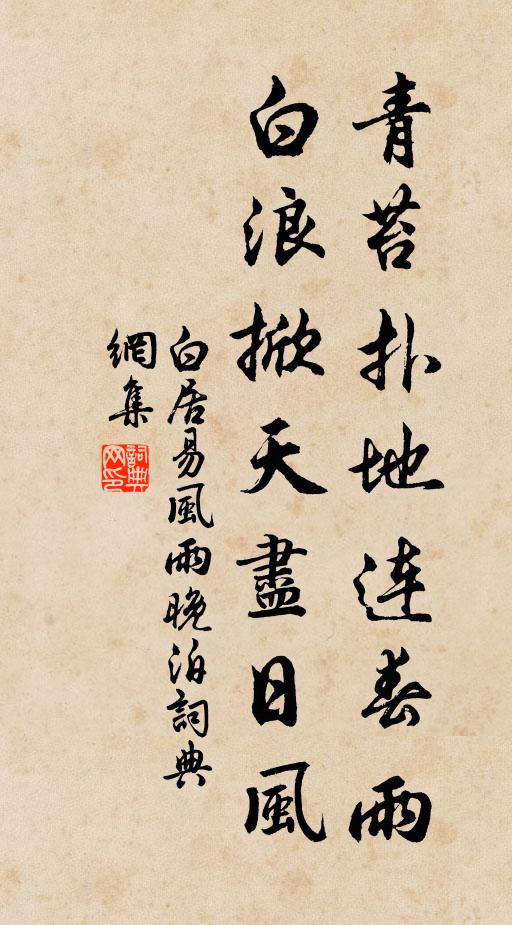 青苔扑地連春雨
白浪掀天盡日風
白居易風雨晚泊詞典
網集
詞典
网印